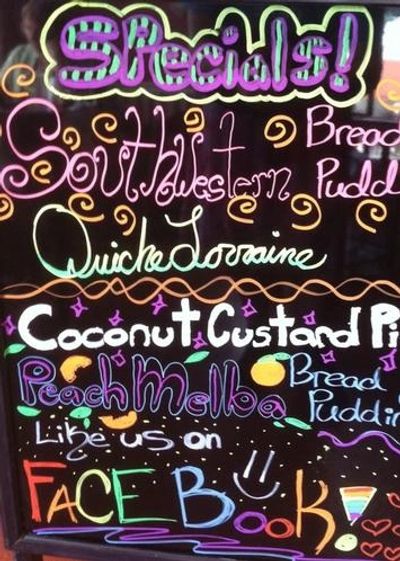 Specials!
Southwestern Bread Pudd
Quiche Lorraine
Coconut Custard Pi
Peach Melba Bread Puddin
Like us on
FACEBook!